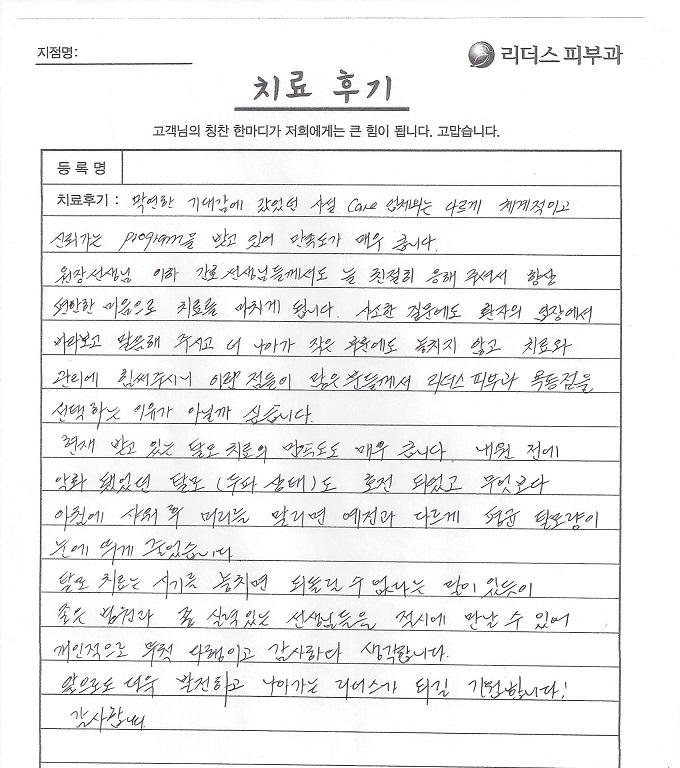 지점명:
리더스 피부과
치료 후기
고객님의 칭찬 한마디가 저희에게는 큰 힘이 됩니다. 고맙습니다.
등 록 명
치료후기 : 막연한 기대감에 갔었던 사설 Care 업체와는 다르게 체계적이고
신뢰가는 program을 받고 있어 만족도가 매우 큽니다.
원장선생님 이하 간호선생님들께서도 늘 친절히 응해 주셔서 항상
편안한 마음으로 치료를 마치게 됩니다. 사소한 질문에도 환자의 입장에서
바라보고 말씀해 주시고 더 나아가 작은 부분에도 놓치지 않고 치료와
관리에 힘써주시니 이런 점들이 많은 분들께서 리더스 피부과 목동점을
선택하는 이유가 아닐까 싶습니다.
현재 받고 있는 탈모 치료의 만족도도 매우 큽니다. 내원 전에
악화 됐었던 탈모 (두피 상태)도 호전 되었고 무엇보다
아침에 샤워 후 머리를 말리면 예전과 다르게 평균 탈모량이
눈에 띄게 줄었습니다.
탈모 치료는 시기를 놓치면 되돌릴 수 없다는 말이 있듯이
좋은 병원과 실력있는 선생님들을 적시에 만날 수 있어
개인적으로 무척 다행이고 감사하다 생각합니다.
앞으로도 더욱 발전하고 나아가는 리더스가 되길 기원합니다!
감사합니다.